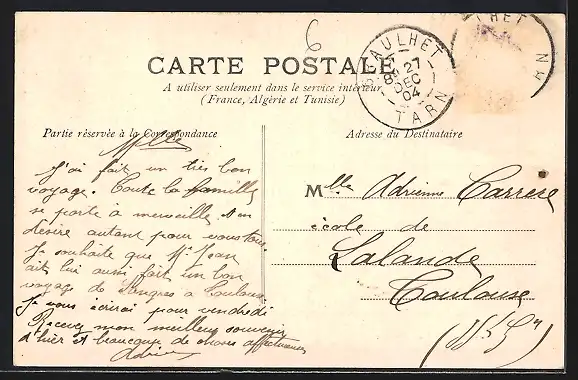 6
CARTE POSTALE
A utiliser seulement dans le service intérieur
(France, Algérie et Tunisie)
GRAULHET
27
DEC
04
TARN
LHET
RN
Partie réservée à la Correspondance
Adresse du Destinataire
Mlle
J'ai fait un très bon
voyage. Toute la famille
se porte à merveille et en
désire autant pour vous tous
Je souhaite que Mr Jean
ait lui aussi fait un bon
voyage de à Toulouse
Je vous écrirai pour vendredi
Recevez mon meilleur souvenir
d'hier et beaucoup de choses affectueuses
Mlle Adrienne Carrere
école de
Lalande
Toulouse
(Hte Gne)